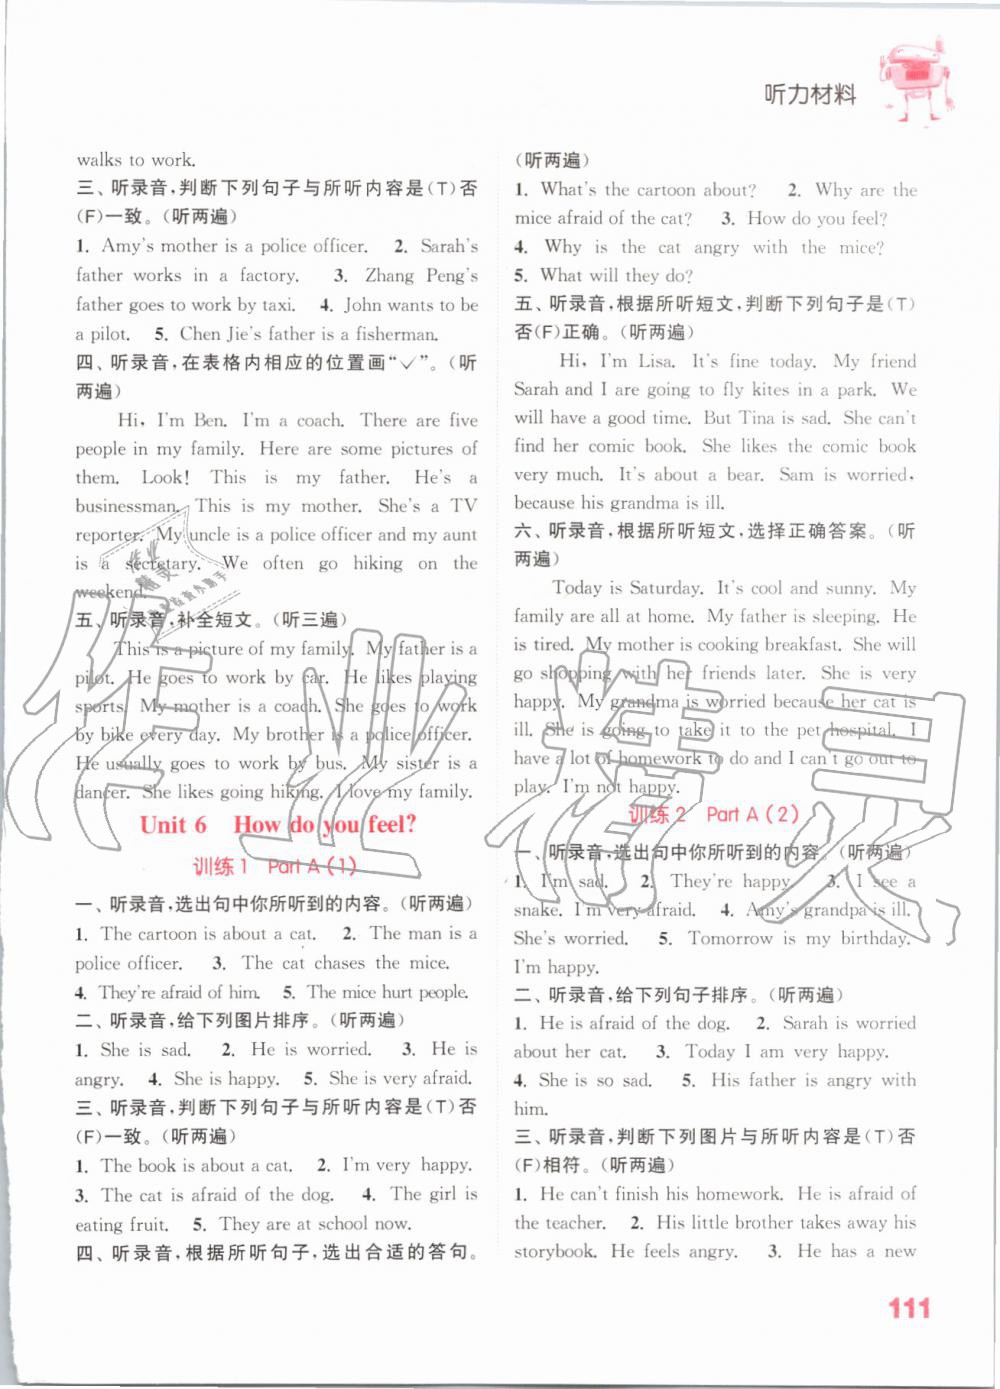 听力材料
walks to work.
三、听录音,判断下列句子与所听内容是(T)否
(F)一致。(听两遍)
1. Amy's mother is a police officer. 2. Sarah's
father works in a factory. 3. Zhang Peng's
father goes to work by taxi. 4. John wants to be
a pilot. 5. Chen Jie's father is a fisherman.
四、听录音,在表格内相应的位置画“✓”。(听
两遍)
Hi, I'm Ben. I'm a coach. There are five
people in my family. Here are some pictures of
them. Look! This is my father. He's a
businessman. This is my mother. She's a TV
reporter. My uncle is a police officer and my aunt
is a secretary. We often go hiking on the
weekend.
五、听录音,补全短文。(听三遍)
This is a picture of my family. My father is a
pilot. He goes to work by car. He likes playing
sports. My mother is a coach. She goes to work
by bike every day. My brother is a police officer.
He usually goes to work by bus. My sister is a
dancer. She likes going hiking. I love my family.
Unit 6 How do you feel?
训练1 Part A (1)
一、听录音,选出句中你所听到的内容。(听两遍)
1. The cartoon is about a cat. 2. The man is a
police officer. 3. The cat chases the mice.
4. They're afraid of him. 5. The mice hurt people.
二、听录音,给下列图片排序。(听两遍)
1. She is sad. 2. He is worried. 3. He is
angry. 4. She is happy. 5. She is very afraid.
三、听录音,判断下列句子与所听内容是(T)否
(F)一致。(听两遍)
1. The book is about a cat. 2. I'm very happy.
3. The cat is afraid of the dog. 4. The girl is
eating fruit. 5. They are at school now.
四、听录音,根据所听句子,选出合适的答句。
(听两遍)
1. What's the cartoon about? 2. Why are the
mice afraid of the cat? 3. How do you feel?
4. Why is the cat angry with the mice?
5. What will they do?
五、听录音,根据所听短文,判断下列句子是(T)
否(F)正确。(听两遍)
Hi, I'm Lisa. It's fine today. My friend
Sarah and I are going to fly kites in a park. We
will have a good time. But Tina is sad. She can't
find her comic book. She likes the comic book
very much. It's about a bear. Sam is worried,
because his grandma is ill.
六、听录音,根据所听短文,选择正确答案。(听
两遍)
Today is Saturday. It's cool and sunny. My
family are all at home. My father is sleeping. He
is tired. My mother is cooking breakfast. She will
go shopping with her friends later. She is very
happy. My grandma is worried because her cat is
ill. She is going to take it to the pet hospital. I
have a lot of homework to do and I can't go out to
play. I'm not happy.
训练2 Part A (2)
一、听录音,选出句中你所听到的内容。(听两遍)
1. I'm sad. 2. They're happy. 3. I see a
snake. I'm very afraid. 4. Amy's grandpa is ill.
She's worried. 5. Tomorrow is my birthday.
I'm happy.
二、听录音,给下列句子排序。(听两遍)
1. He is afraid of the dog. 2. Sarah is worried
about her cat. 3. Today I am very happy.
4. She is so sad. 5. His father is angry with
him.
三、听录音,判断下列图片与所听内容是(T)否
(F)相符。(听两遍)
1. He can't finish his homework. He is afraid of
the teacher. 2. His little brother takes away his
storybook. He feels angry. 3. He has a new
111
作业精灵